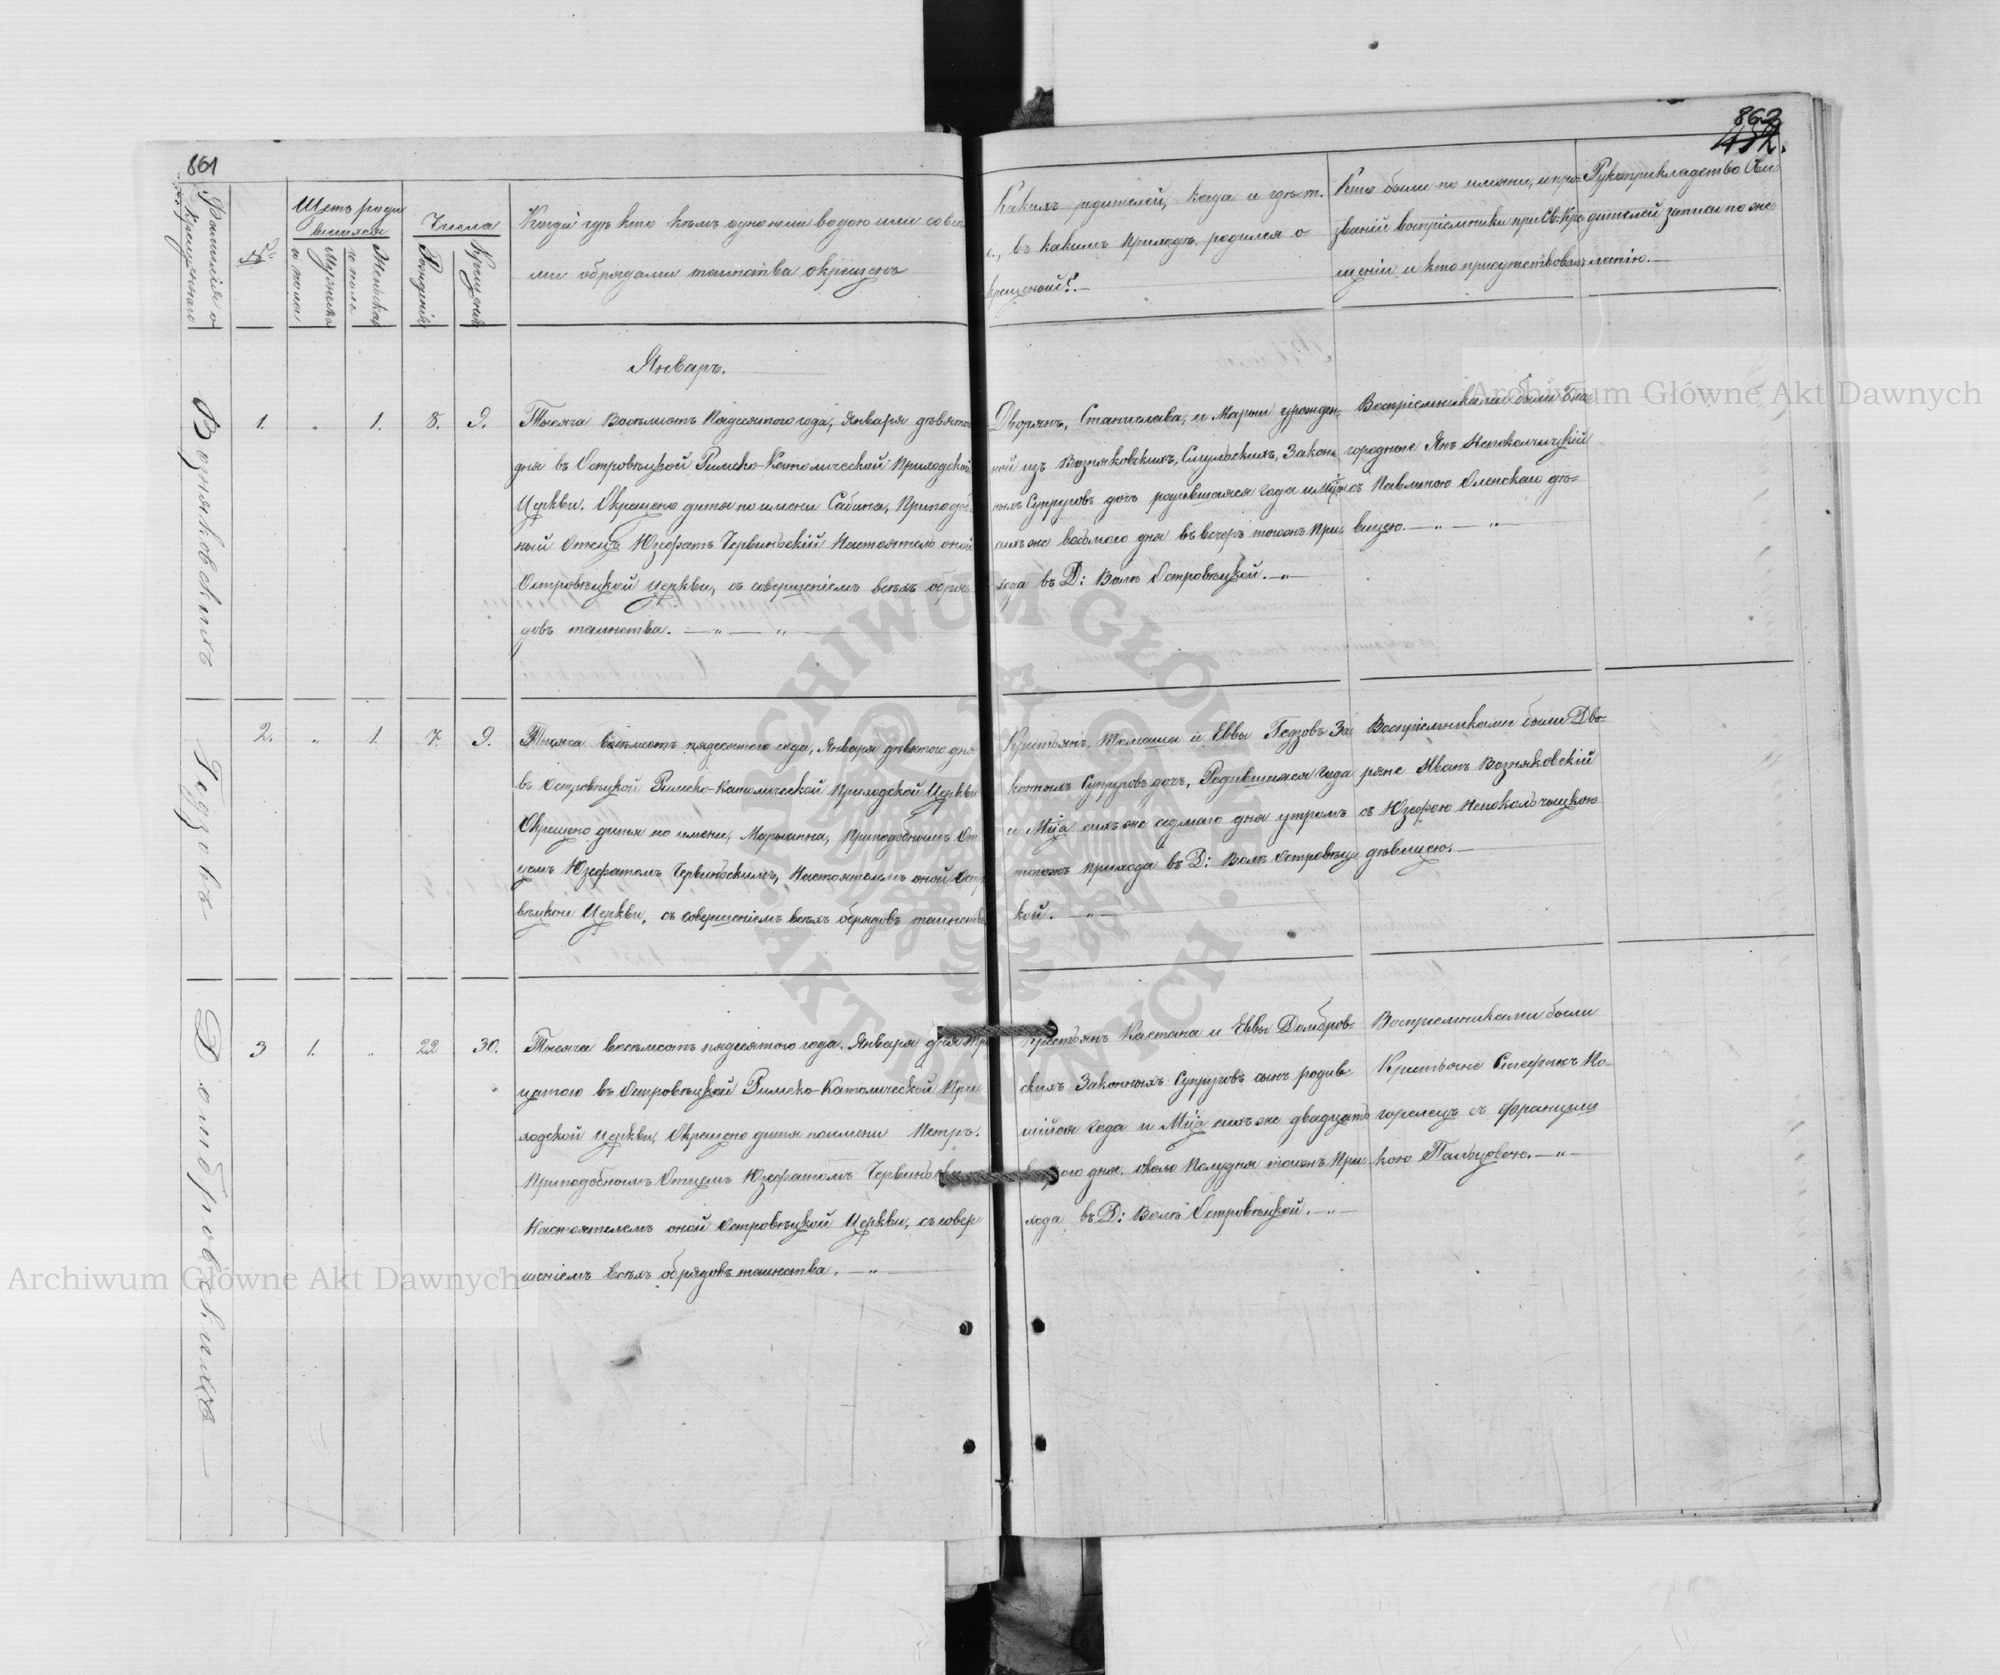 861
862
Фамилія о
крещеннаго
№
Щетъ роди
вшихся
Мужеска
го пола
Женска
го пола
Числа
Рожденія
Крещенія
Когда где кто кѣмъ одною ли водою или со все
ми обрядами таинства окрещенъ
Какихъ родителей, когда и гдѣ т.
е., въ какимъ Приходѣ родился о
крещеной?.—
Кто были по имяни, и про
званій воспріемники при Св. Кре
щеніи и кто присутствовалъ
Рукоприкладство
дителей записи по же
ланію.—
Январъ.
Возняковскихъ
1.
"
1.
8.
9.
Тысяча Восемьсотъ Пядесятого года, Января девятого
дня въ Островѣцкой Римско-Католической Приходской
Церкви. Окрещено дитя по имени Сабина, Приподоб-
ный Отецъ Юзефатъ Червинскій Настоятель оной
Островѣцкой Церкви, съ совершеніемъ всѣхъ обря
довъ таинства. — " — " —
Дворянъ, Станислава, и Марыи урожден-
ной изъ Возняковскихъ, Закон
ныхъ Супруговъ дочъ родившаяся года и Мца
сихъ же восьмого дня въ вечеръ тогожъ При
хода въ Д: Волѣ Островѣцкой. — "
Воспріемниками были Бла
городные Янъ Непокольчицкій
съ Павлиною Оленскою дѣ=
вицею. — " — "
Гедзовъ
2.
"
1.
7.
9.
Тысяча восемьсотъ пядесятого года, Января девятого дня
въ Островѣцкой Римско-Католической Приходской Церкви
Окрещено дитя по имени, Марыанна, Приподобнымъ От
цемъ Юзефатомъ Червинскимъ, Настоятелемъ оной Остро
вѣцкой Церкви, съ совершеніемъ всѣхъ обрядовъ таинства
Крестьянъ, Томаша и Еввы Гедзовъ За
конныхъ Супруговъ дочъ, Родившаяся года
и Мца сихъ же седмаго дня утромъ
тогожъ прихода въ Д: Волѣ Островѣц
кой. — "
Воспріемниками были Дво-
ряне Иванъ Возняковскій
съ Юзефою Непокольчицкою
дѣвицею. —
Домбровскихъ
3
1.
"
22
30.
Тысяча восемьсотъ пядесятого года. Января дня три
цятого въ Островѣцкой Римско-Католической При
ходской Церкви, Окрещено дитя поимени Петръ.
Приподобнымъ Отцемъ Юзефатомъ Червинскимъ
Настоятелемъ оной Островѣцкой Церкви, съ совер
шеніемъ всѣхъ обрядовъ таинства. — "
Крестьянъ Каетана и Еввы Домбров-
скихъ Законныхъ Супруговъ сынъ родив-
шійся года и Мца сихъ же двадцать
второго дня. около Полудня тогожъ При
хода въ Д: Волѣ Островѣцкой. — "
Воспріемниками были
Крестьяне Стефанъ По-
горелецъ съ Франциш
кою Пальцовою. — "
Archiwum Główne Akt Dawnych
Archiwum Główne Akt Dawnych
ARCHIWUM GŁÓWNE AKT DAWNYCH